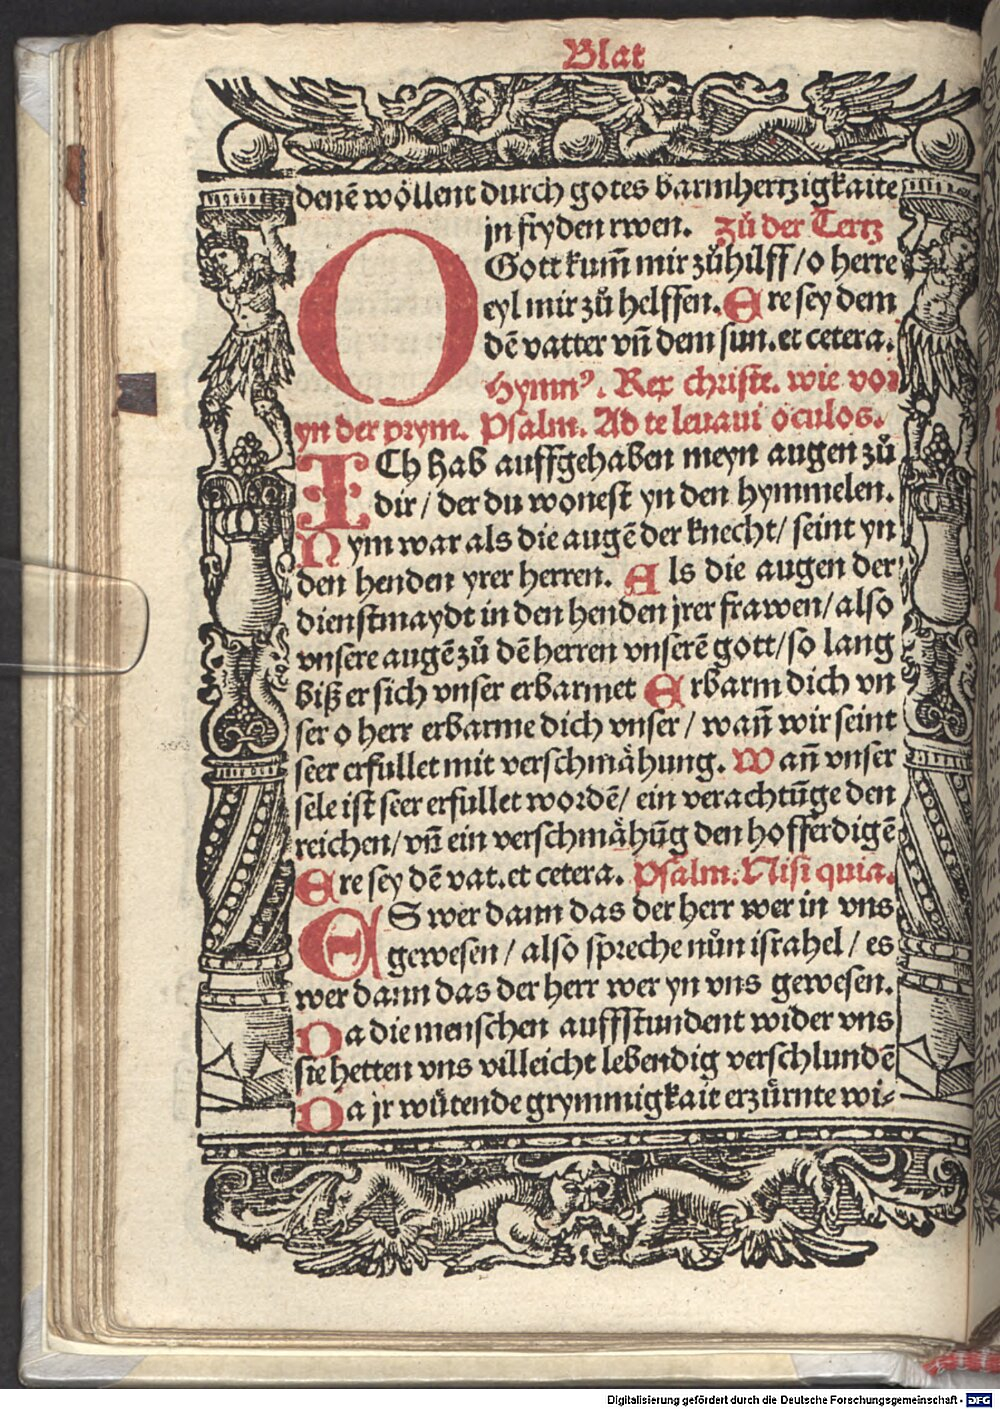 Blat
denē wöllent durch gotes barmhertzigkaite
jn fryden rwen. zů der Tertz
O Gott kum̄ mir zů hilff / o herre
eyl mir zů helffen. Ere sey dem
dē vatter vn̄ dem sun. et cetera.
Hymnꝰ. Rex christe. wie vor
yn der prym. Psalm. Ad te leuaui oculos.
ICh hab auffgehaben meyn augen zů
dir / der du wonest yn den hymmelen.
Nym war als die augē der knecht / seint yn
den henden yrer herren. Als die augen der
dienstmaydt in den henden jrer frawen / also
vnsere augē zů dē herren vnserē gott / so lang
biß er sich vnser erbarmet Erbarm dich vn
ser o herr erbarme dich vnser / wan̄ wir seint
seer erfullet mit verschmåhung. Wan̄ vnser
sele ist seer erfullet wordē / ein verachtūge den
reichen / vn̄ ein verschmåhūg den hofferdigē
Ere sey dē vat. et cetera. Psalm. Nisi quia.
ES wer dann das der herr wer in vns
gewesen / also spreche nůn israhel / es
wer dann das der herr wer yn vns gewesen.
Da die menschen auffstundent wider vns
sie hetten vns villeicht lebendig verschlundē
Da jr wütende grymmigkait erzürnte wi-
Digitalisierung gefördert durch die Deutsche Forschungsgemeinschaft - DFG